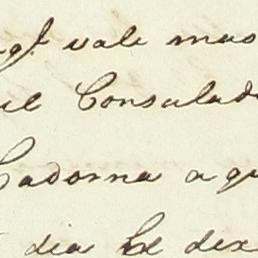 vale mas
Consulad
Cadorna a qu
dia de dez